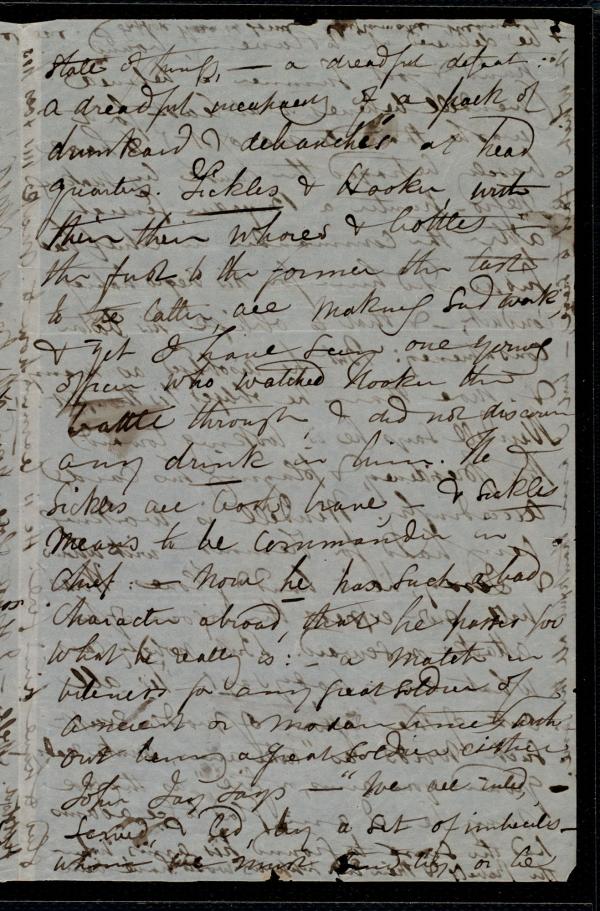 state of things, — a dreadful defeat :
a dreadful incapacity of a pack of
drunkard & debauches at head
quarters. Sickles & Hooker, with
their their whores & bottles —
the first to the former the last
to the latter, are making sad work,
& yet I have seen one young
officer who watched Hooker the
battle through, & did not discover
any drink in him. He &
Sickles are both brave, & Sickles
means to be Commander in
Chief : — now he has such a bad
character abroad, that he passes for
what he really is : — a match in
vileness for any great soldier of
ancient or modern times, with
out being a great soldier either
John Jay says — "We are ruled,
served, & led, by a set of imbeciles —
whom we must or be